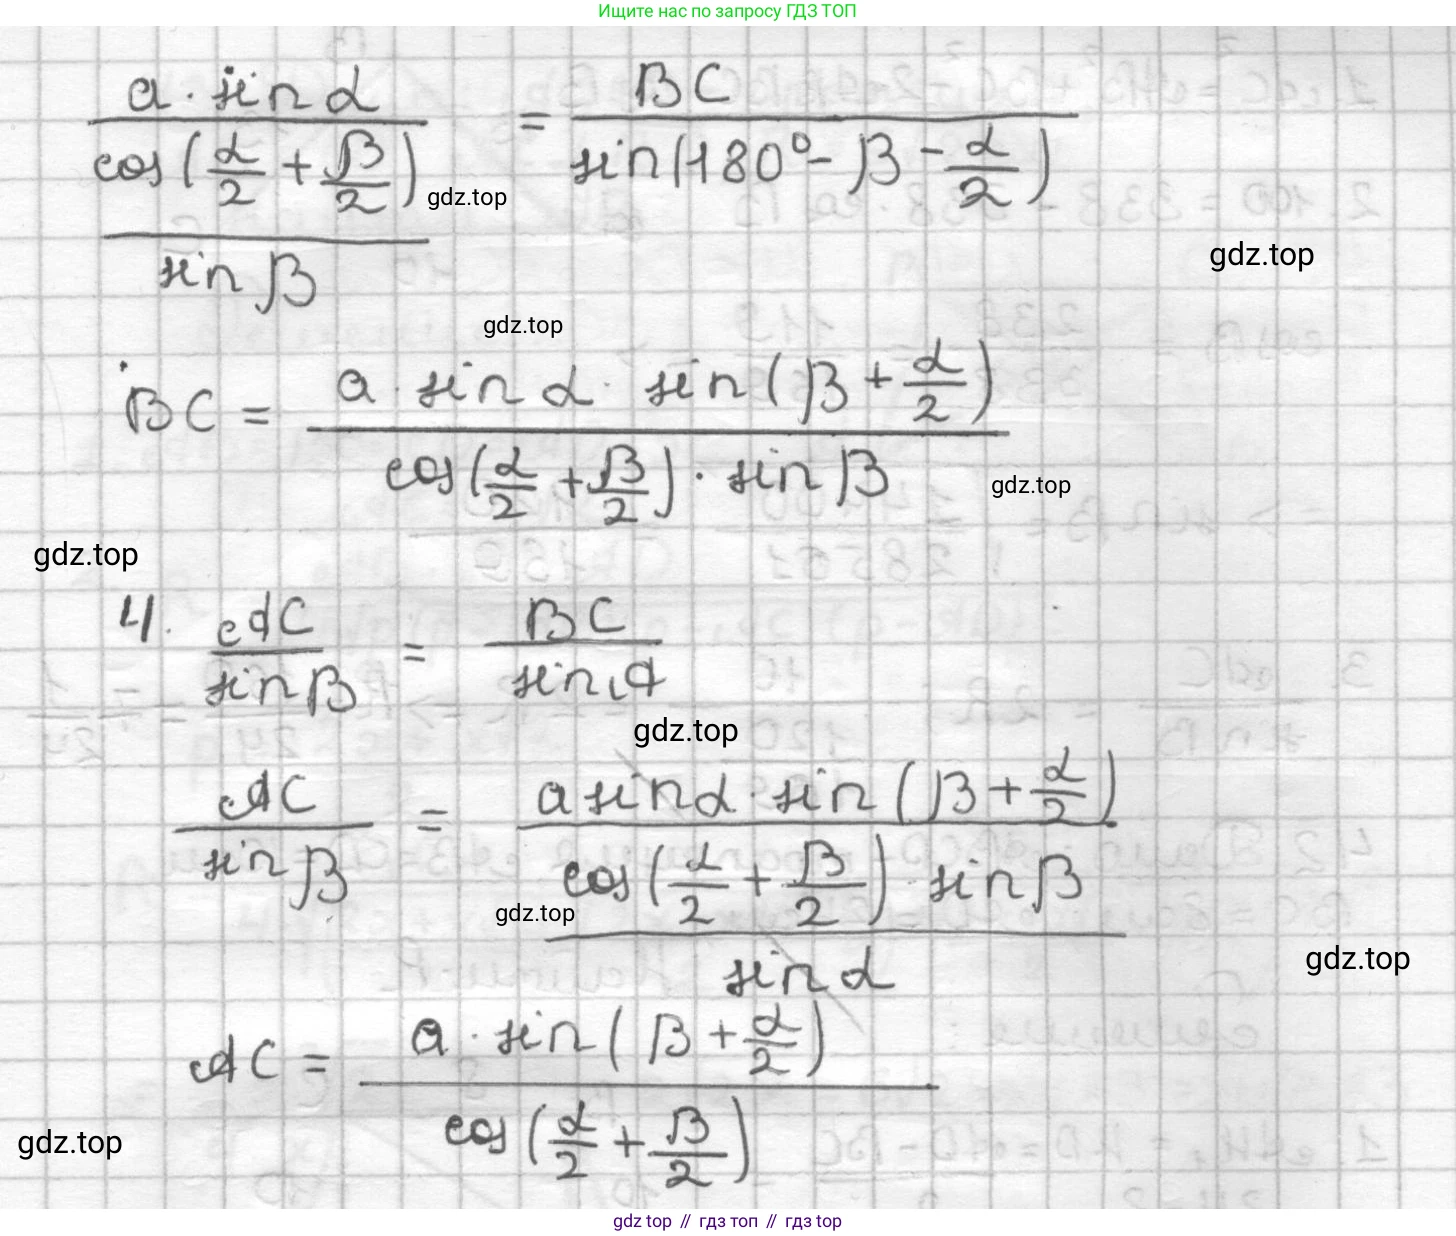 Ищите нас по запросу ГДЗ ТОП
a · sin α / cos(α/2 + β/2) / sin β = BC / sin(180° - β - α/2)
gdz.top
gdz.top
gdz.top
BC = a · sin α · sin(β + α/2) / cos(α/2 + β/2) · sin β
gdz.top
gdz.top
4. AC / sin β = BC / sin A
gdz.top
AC / sin β = a sin α · sin(β + α/2) / cos(α/2 + β/2) · sin β / sin α
gdz.top
gdz.top
AC = a · sin(β + α/2) / cos(α/2 + β/2)
gdz.top
gdz top // гдз топ // гдз top